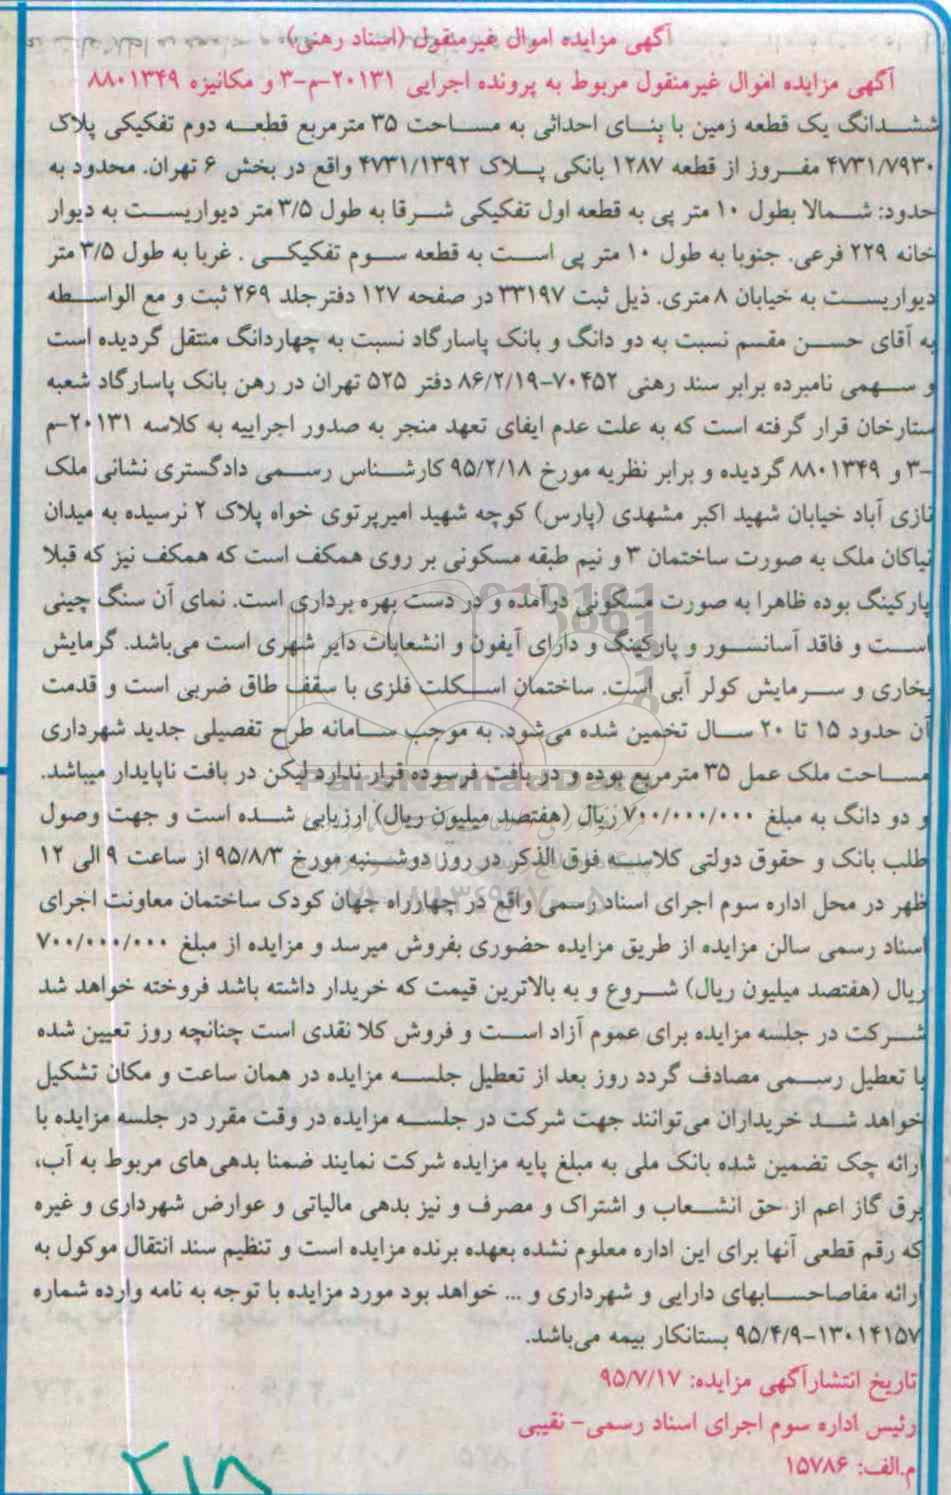 آگهی مزایده اموال غیرمنقول (اسناد رهنی)
آگهی مزایده اموال غیرمنقول مربوط به پرونده اجرایی ۲۰۱۳۱-م-۳ و مکانیزه ۸۸۰۱۳۴۹
ششدانگ یک قطعه زمین با بنای احداثی به مساحت ۳۵ مترمربع قطعه دوم تفکیکی پلاک
۴۷۳۱/۷۹۳۰ مفروز از قطعه ۱۲۸۷ بانکی پلاک ۴۷۳۱/۱۳۹۲ واقع در بخش ۶ تهران. محدود به
حدود: شمالا بطول ۱۰ متر پی به قطعه اول تفکیکی شرقا به طول ۳/۵ متر دیواریست به دیوار
خانه ۲۲۹ فرعی. جنوبا به طول ۱۰ متر پی است به قطعه سوم تفکیکی . غربا به طول ۳/۵ متر
دیواریست به خیابان ۸ متری. ذیل ثبت ۳۳۱۹۷ در صفحه ۱۲۷ دفترجلد ۲۶۹ ثبت و مع الواسطه
به آقای حسن مقسم نسبت به دو دانگ و بانک پاسارگاد نسبت به چهاردانگ منتقل گردیده است
و سهمی نامبرده برابر سند رهنی ۷۰۴۵۲-۸۶/۲/۱۹ دفتر ۵۲۵ تهران در رهن بانک پاسارگاد شعبه
ستارخان قرار گرفته است که به علت عدم ایفای تعهد منجر به صدور اجراییه به کلاسه ۲۰۱۳۱-م
-۳ و ۸۸۰۱۳۴۹ گردیده و برابر نظریه مورخ ۹۵/۲/۱۸ کارشناس رسمی دادگستری نشانی ملک
نازی آباد خیابان شهید اکبر مشهدی (پارس) کوچه شهید امیرپرتوی خواه پلاک ۲ نرسیده به میدان
نیاکان ملک به صورت ساختمان ۳ و نیم طبقه مسکونی بر روی همکف است که همکف نیز که قبلا
پارکینگ بوده ظاهرا به صورت مسکونی درآمده و در دست بهره برداری است. نمای آن سنگ چینی
است و فاقد آسانسور و پارکینگ و دارای آیفون و انشعابات دایر شهری است می‌باشد. گرمایش
بخاری و سرمایش کولر آبی است. ساختمان اسکلت فلزی با سقف طاق ضربی است و قدمت
آن حدود ۱۵ تا ۲۰ سال تخمین شده می‌شود. به موجب سامانه طرح تفصیلی جدید شهرداری
مساحت ملک عمل ۳۵ مترمربع بوده و در بافت فرسوده قرار ندارد لیکن در بافت ناپایدار میباشد.
و دو دانگ به مبلغ ۷۰۰/۰۰۰/۰۰۰ ریال (هفتصد میلیون ریال) ارزیابی شده است و جهت وصول
طلب بانک و حقوق دولتی کلاسه فوق الذکر در روز دوشنبه مورخ ۹۵/۸/۳ از ساعت ۹ الی ۱۲
ظهر در محل اداره سوم اجرای اسناد رسمی واقع در چهارراه جهان کودک ساختمان معاونت اجرای
اسناد رسمی سالن مزایده از طریق مزایده حضوری بفروش میرسد و مزایده از مبلغ ۷۰۰/۰۰۰/۰۰۰
ریال (هفتصد میلیون ریال) شروع و به بالاترین قیمت که خریدار داشته باشد فروخته خواهد شد
شرکت در جلسه مزایده برای عموم آزاد است و فروش کلا نقدی است چنانچه روز تعیین شده
با تعطیل رسمی مصادف گردد روز بعد از تعطیل جلسه مزایده در همان ساعت و مکان تشکیل
خواهد شد خریداران می‌توانند جهت شرکت در جلسه مزایده در وقت مقرر در جلسه مزایده با
ارائه چک تضمین شده بانک ملی به مبلغ پایه مزایده شرکت نمایند ضمنا بدهی‌های مربوط به آب،
برق گاز اعم از حق انشعاب و اشتراک و مصرف و نیز بدهی مالیاتی و عوارض شهرداری و غیره
که رقم قطعی آنها برای این اداره معلوم نشده بعهده برنده مزایده است و تنظیم سند انتقال موکول به
ارائه مفاصاحسابهای دارایی و شهرداری و ... خواهد بود مورد مزایده با توجه به نامه وارده شماره
۱۳۰۱۴۱۵۷-۹۵/۴/۹ بستانکار بیمه می‌باشد.
تاریخ انتشارآگهی مزایده: ۹۵/۷/۱۷
رئیس اداره سوم اجرای اسناد رسمی- نقیبی
م.الف: ۱۵۷۸۶
۲۱۸
ParsNamadData